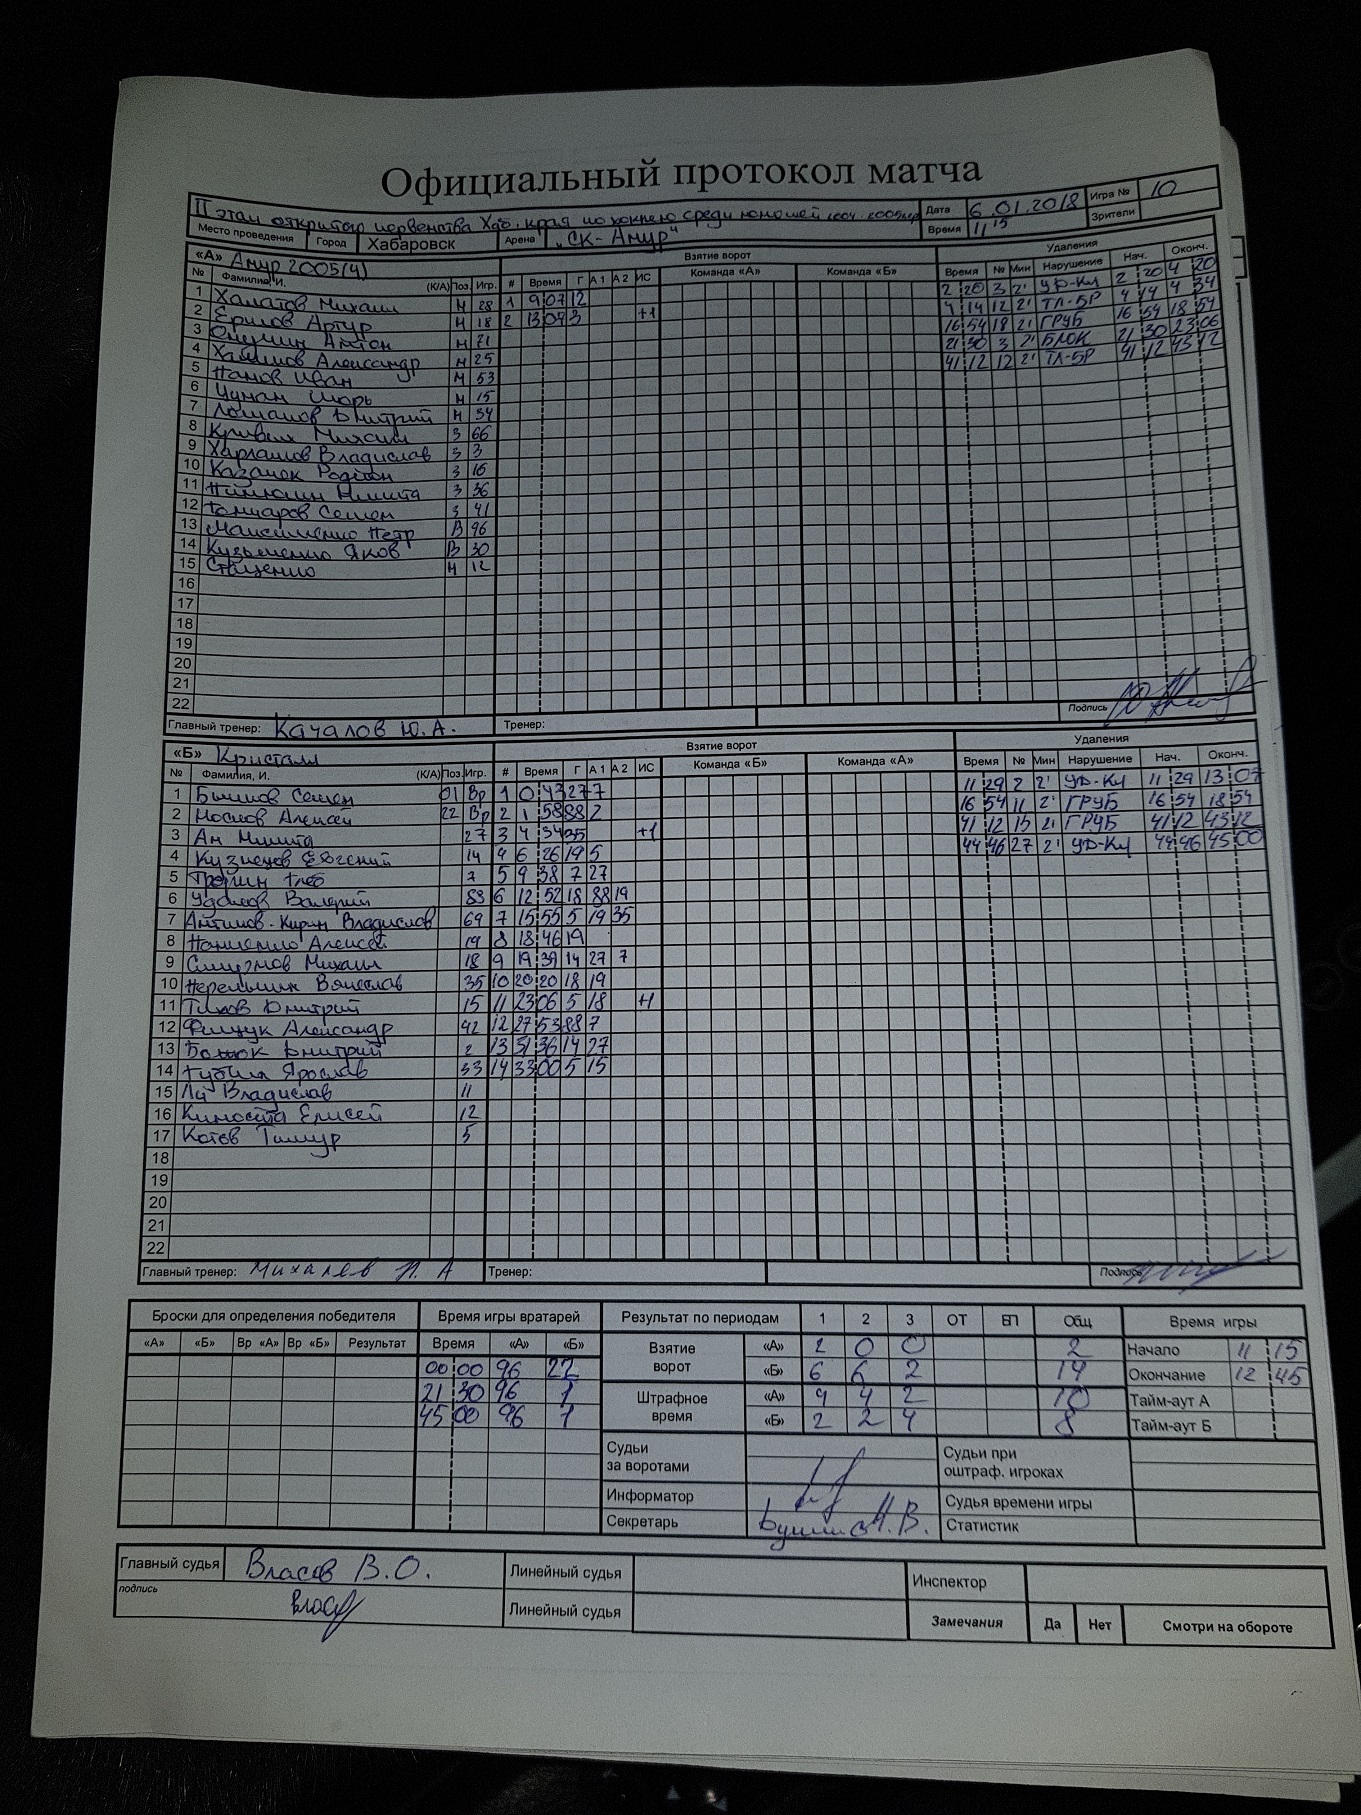 Официальный протокол матча
II этап открытого первенства Хаб. края по хоккею среди юношей Дата 6.01.2018 Игра № 10
Место проведения Город Хабаровск Арена "СК-Амур" Время 11 15 Зрители
«А» Амур 2005(4) Взятие ворот Удаления
№ Фамилия, И. (К/А) Поз. Игр. # Время Г А1 А2 ИС Команда «А» Команда «Б» Время № Мин Нарушение Нач. Оконч.
1 Халатов Михаил Н 28 1 9 07 12 2 20 3 2' УД-КЛ 2 20 4 20
2 Ермлов Артур Н 18 2 13 09 3 +1 4 14 12 2' ТЛ-БР 4 14 4 34
3 Антон Н 71 16 54 18 2' ГРУБ 16 54 18 54
4 Александр Н 25 21 30 3 2' БЛОК 21 30 23 06
5 Иван Н 53 41 12 12 2' ТЛ-БР 41 12 43 12
6 Игорь Н 15
7 Дмитрий Н 34
8 Михаил З 66
9 Харламов Владислав З 3
10 Казачок Родион З 16
11 Никита З 36
12 Гончаров Семен З 41
13 Максименко Петр В 96
14 Кузьменко Яков В 30
15 Стаценко Н 12
16
17
18
19
20
21
22
Главный тренер: Качалов Ю.А. Тренер: Подпись
«Б» Кристалл Взятие ворот Удаления
№ Фамилия, И. (К/А) Поз. Игр. # Время Г А1 А2 ИС Команда «Б» Команда «А» Время № Мин Нарушение Нач. Оконч.
1 Семен 01 Вр 1 0 43 27 7 11 29 2 2' УД-КЛ 11 29 13 07
2 Носков Алексей 22 Вр 2 1 58 88 2 16 54 11 2' ГРУБ 16 54 18 54
3 Ан Никита 27 3 4 34 35 +1 41 12 15 2' ГРУБ 41 12 43 12
4 Кузнецов Евгений 14 4 6 26 19 5 44 46 27 2' УД-КЛ 44 46 45 00
5 Глеб 7 5 9 38 7 27
6 Удалов Валерий 83 6 12 52 18 88 19
7 Антипов-Кирин Владислав 69 7 15 55 5 19 35
8 Алексей 19 8 18 46 19
9 Михаил 18 9 19 39 14 27 7
10 Вячеслав 35 10 20 20 18 19
11 Дмитрий 15 11 23 06 5 18 +1
12 Фищук Александр 42 12 27 53 88 7
13 Дмитрий 2 13 31 36 14 27
14 Ярослав 33 14 33 00 5 15
15 Ли Владислав 11
16 Киносита Елисей 12
17 Котов Тимур 5
18
19
20
21
22
Главный тренер: Михалев А. А Тренер: Подпись
Броски для определения победителя Время игры вратарей Результат по периодам 1 2 3 ОТ БП Общ Время игры
«А» «Б» Вр «А» Вр «Б» Результат Время «А» «Б» Взятие ворот «А» 2 0 0 2 Начало 11 15
00 00 96 22 «Б» 6 6 2 14 Окончание 12 45
21 30 96 1 Штрафное время «А» 4 4 2 10 Тайм-аут А
45 00 96 1 «Б» 2 2 4 8 Тайм-аут Б
Судьи за воротами Судьи при оштраф. игроках
Информатор Судья времени игры
Секретарь Статистик
Главный судья Власов В.О. Линейный судья Инспектор
подпись Линейный судья Замечания Да Нет Смотри на обороте